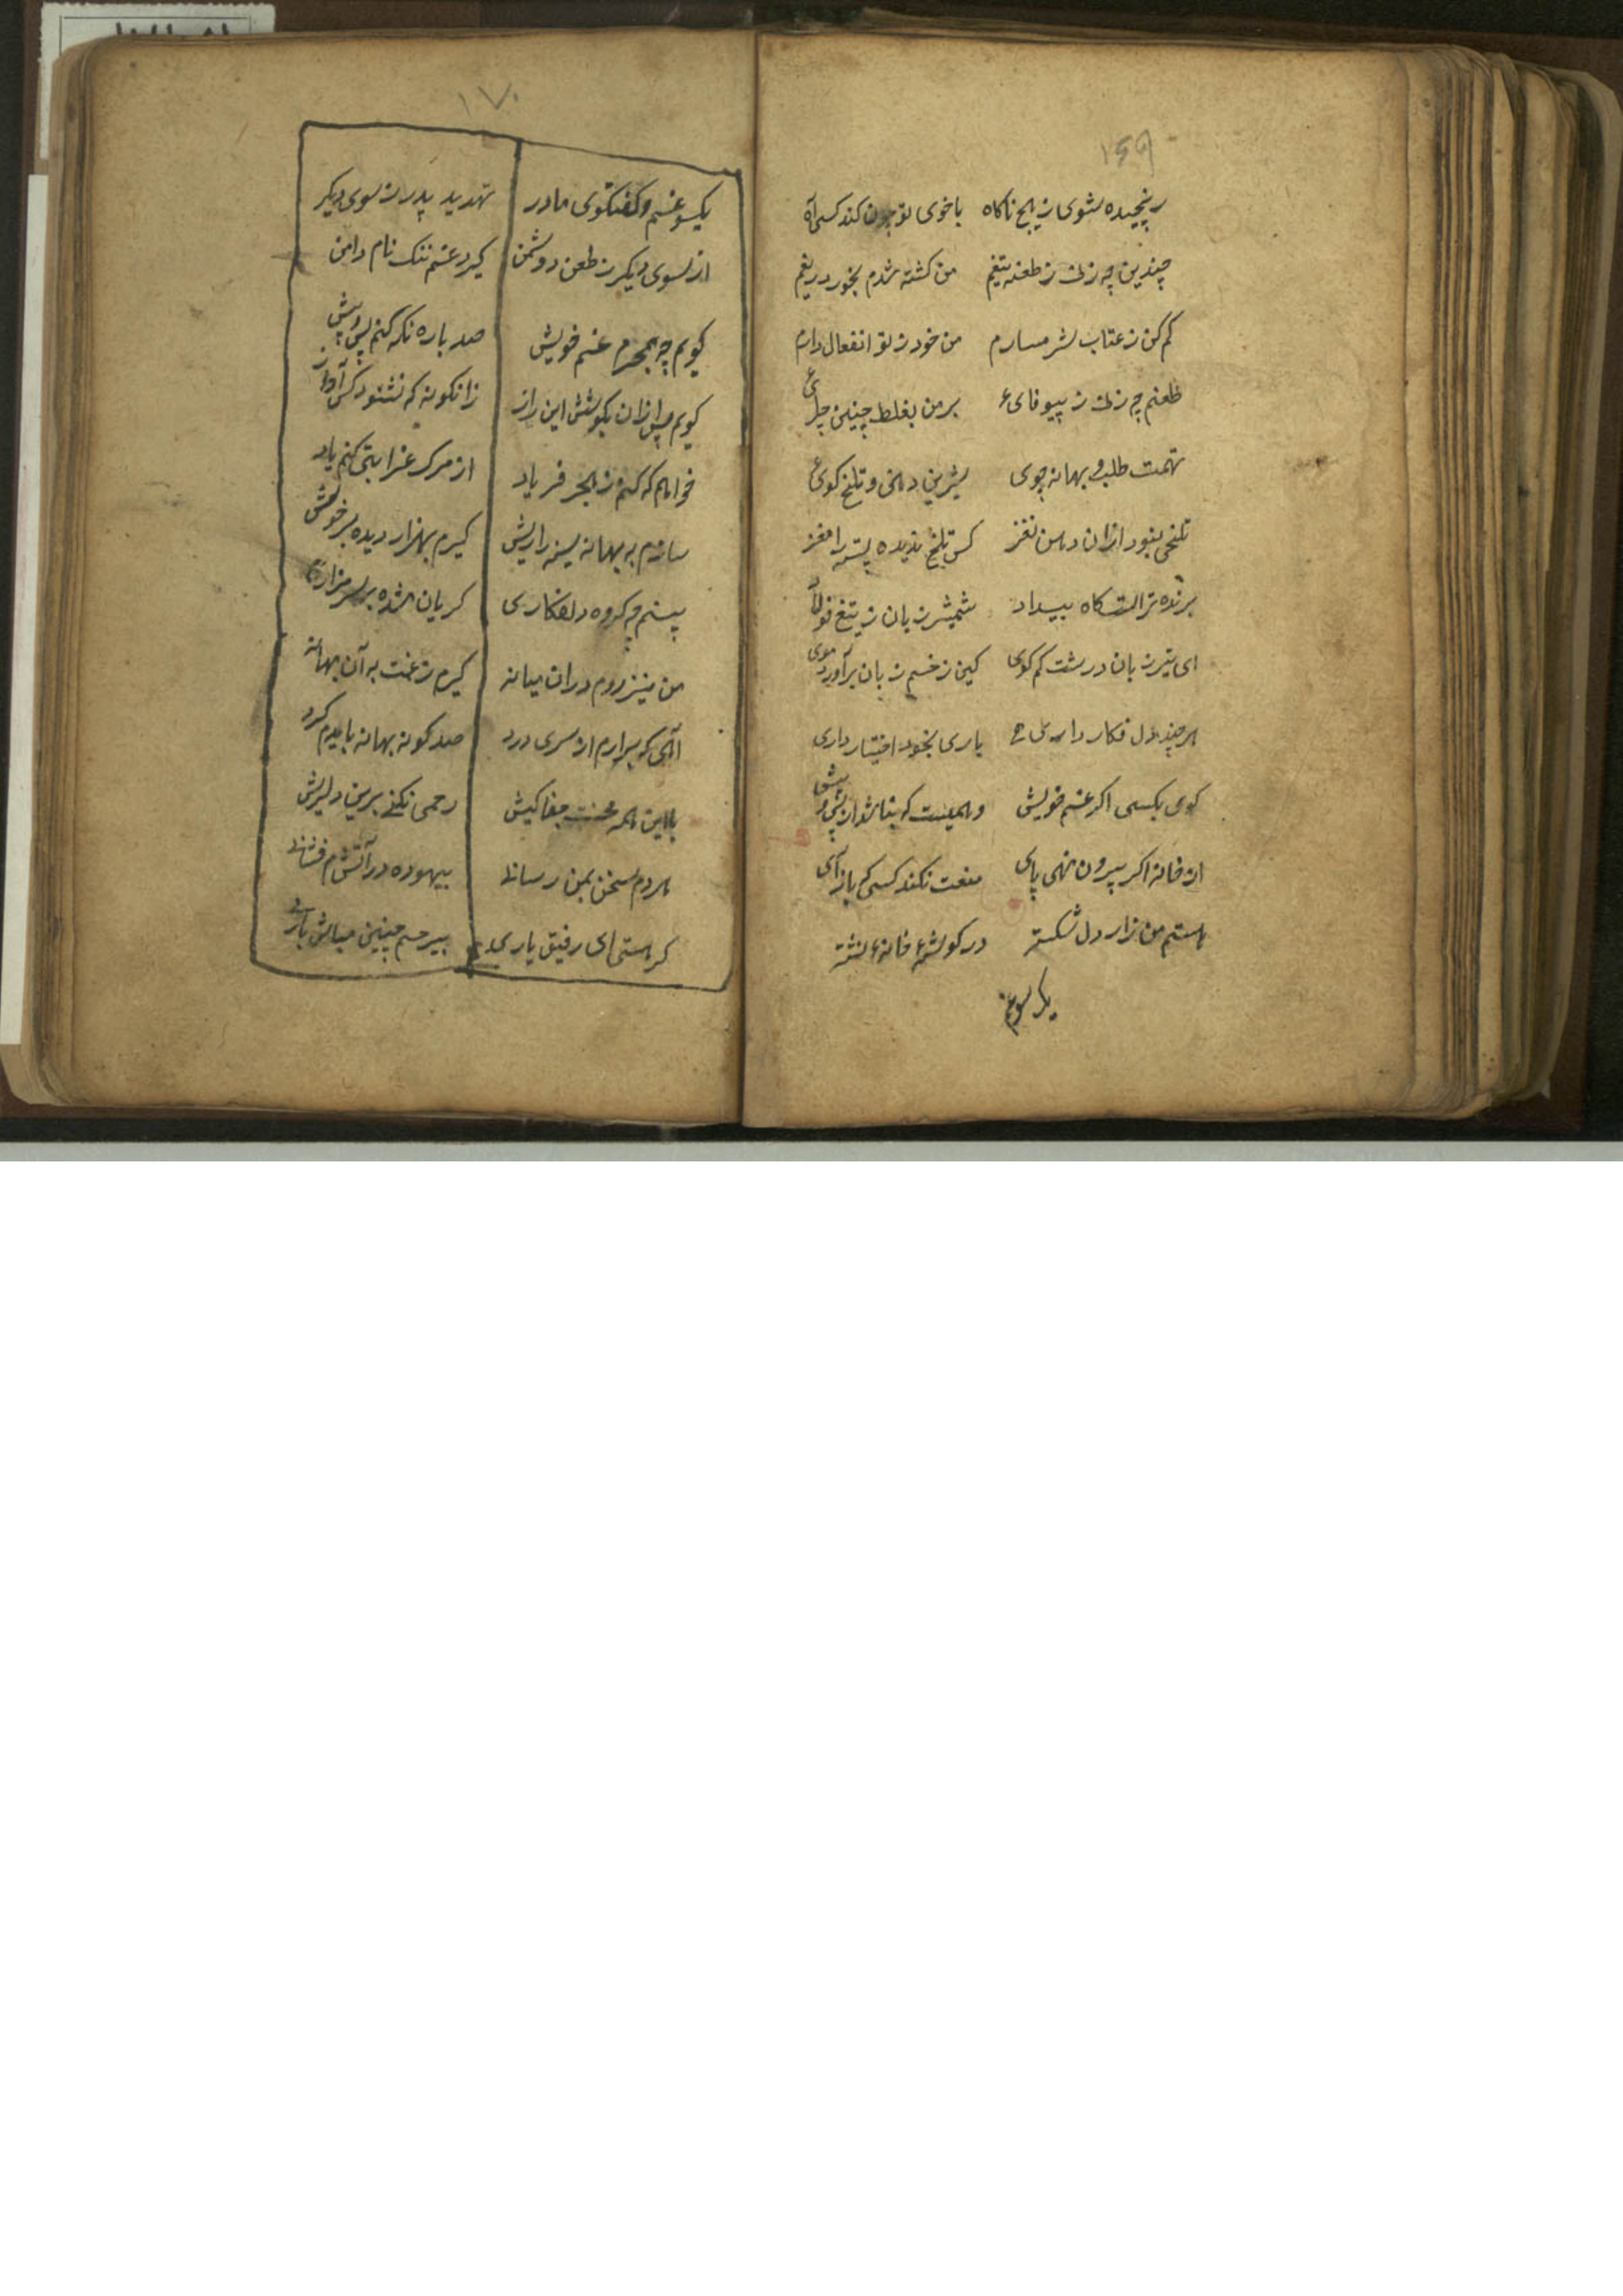 ۱۶۹
رنجیده شوی ز هیچ ناکاه باخوی تو چون کند کسی آه
چندین چه زنی ز طعنه تیغم من کشته شدم بخور دریغم
کم کن ز عتاب شرمسارم من خود ز تو انفعال دارم
طعنم چه زنی ز بیوفایء بر من بغلط چنین چرایء
تهمت طلب و بهانه جوی شیرین دهنی و تلخ کوی
تلخی نبود ازان دهن نغز کس تلخ ندیده پسته را مغز
برنده تراست کاه بیداد شمشیر زبان ز تیغ فولاد
ای تیز زبان درشت کم کوی کین زخم زبان برآورد موی
هرچند دل فکار داری یاری بخود اختیار داری
کوی بکسی اکر غم خویش و اهمیست که بناشدار پس و پیش
از خانه اکر بیرون نهی پای منعت نکند کسی که بازآی
هستم من زار دل شکسته در کوشهٔ خانهٔ نشسته
یکسو غم
۱۷۰
یکسو غم و کفتکوی مادر تهدید پدر ز سوی دیکر
از سوی دیکر ز طعن دشمن کیرد غم ننک نام دامن
کویم چو بمحرم غم خویش صد باره نکه کنم پس و پیش
کویم پس ازان بکوشش این راز زانکونه که نشنود کس آواز
خواهم که کنم ز هجر فریاد از مرک غرابتی کنم یاد
سازم به بهانه سینه را ریش کیرم بهزار دیده بر خویش
بینم چو کروه دلفکاری کریان شده بر سر مزاری
من نیز روم دران میانه کیرم ز غمت به آن بهانه
آهی که برارم از سری درد صد کونه بهانه بایدم کرد
بااین همه محنت جفا کیش رحمی نکنی برین دلریش
هردم سخن بمن رسانی بیهوده در آتشم فشانی
کر هستی ای رفیق یاری بیرحم چنین مباش باری